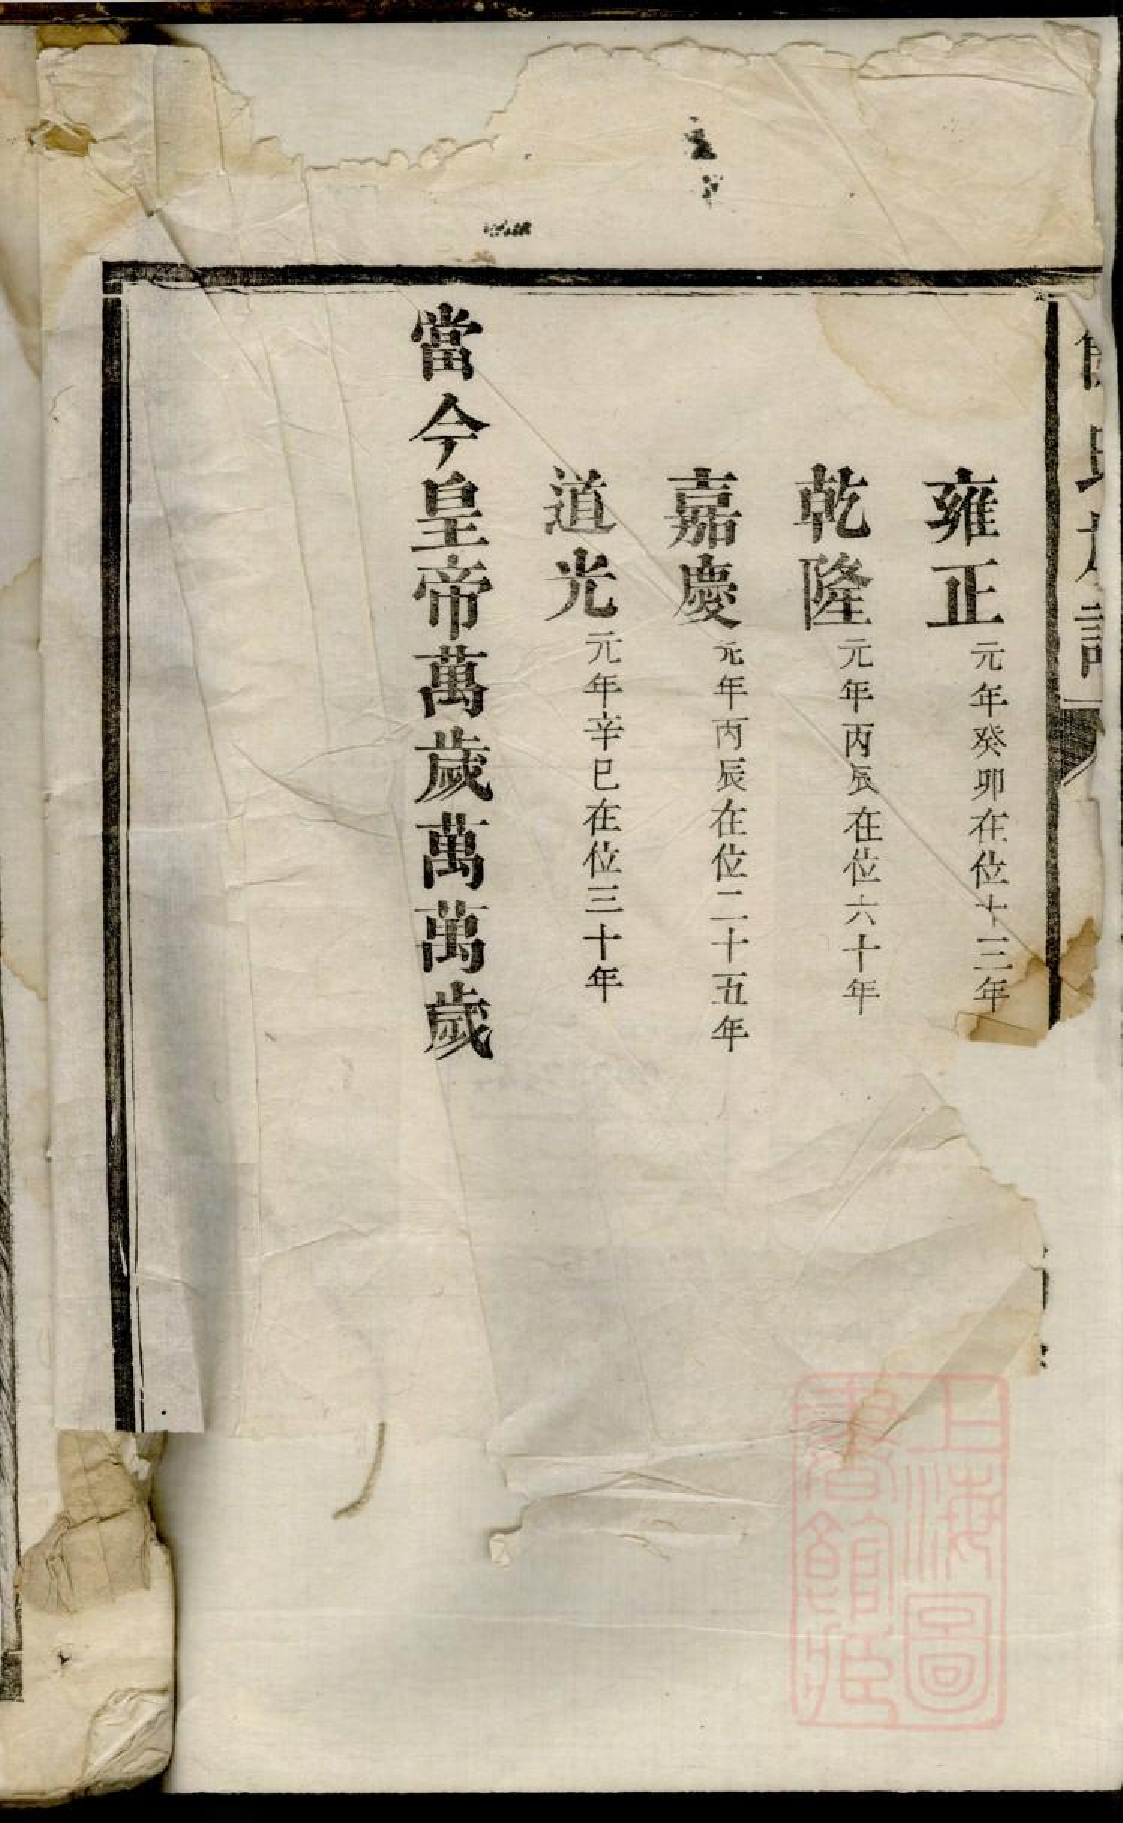 雍正元年癸卯在位十三年
乾隆元年丙辰在位六十年
嘉慶元年丙辰在位二十五年
道光元年辛巳在位三十年
當今皇帝萬歲萬萬歲
上海圖
書館藏